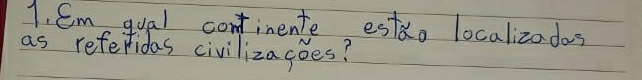 1. Em qual continente estão localizadas
as referidas civilizações?